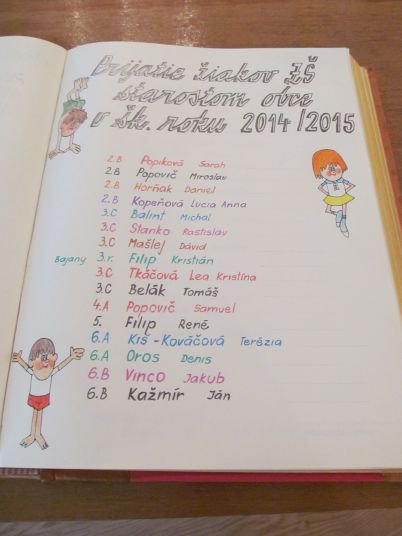 Prijatie žiakov ZŠ
starostom obce
v šk. roku 2014/2015
2.B Popiková Sarah
2.B Popovič Miroslav
2.B Horňak Daniel
2.B Kopeňová Lucia Anna
3.C Balint Michal
3.C Stanko Rastislav
3.C Mašlej Dávid
Bajany 3.r. Filip Kristián
3.C Tkáčová Lea Kristína
3.C Belák Tomáš
4.A Popovič Samuel
5. Filip René
6.A Kiš-Kováčová Terézia
6.A Oros Denis
6.B Vinco Jakub
6.B Kažmír Ján